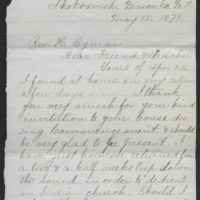 Skokomish, Mason Co. W.T.
May 18, 1878.
Rev. H. Lyman
Dear Friend & Teacher
Yours of Apr. 24
I found at home on my return
a few days since. I thank
you very much for your kind
invitation to your house du-
ring Commencement & should
be very glad to be present. I
have just however returned fr
a two & a half weeks trip down
the Sound, in order to dedicate
an Indian church. Should I